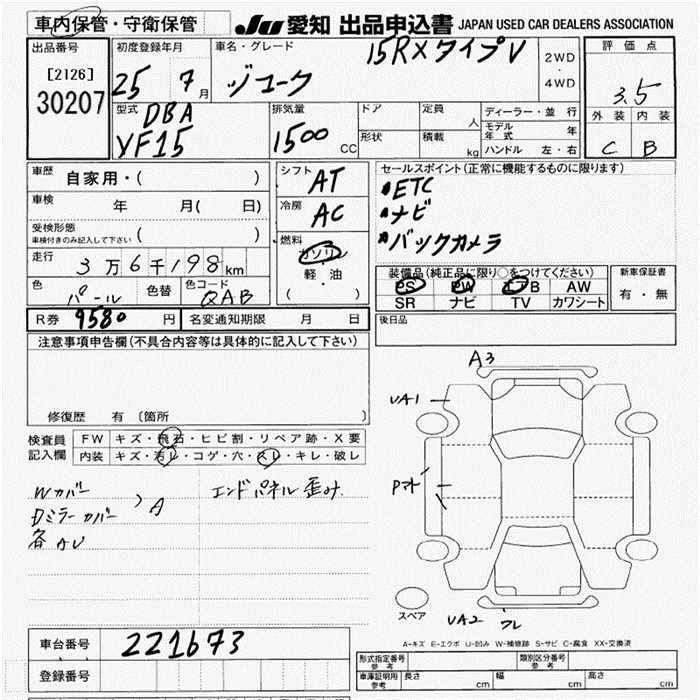 車内保管・守衛保管
JU 愛知 出品申込書 JAPAN USED CAR DEALERS ASSOCIATION
出品番号
[2126]
30207
初度登録年月
25 7月
車名・グレード
15RXタイプV
ジューク
2WD
・
4WD
評価点
3.5
外装 内装
C B
型式
DBA
YF15
排気量
1500 CC
ドア
形状
定員 人
積載 kg
ディーラー・並行
モデル年式 年
ハンドル 左・右
車歴 自家用・( )
車検 年 月( 日)
受検形態
車検付きのみ記入して下さい ( )
走行 3万6千198km
色 パール 色替 色コード QAB
シフト AT
冷房 AC
燃料
ガソリン
軽・油
( )
セールスポイント(正常に機能するものに限ります)
・ETC
・ナビ
・バックカメラ
装備品(純正品に限り○をつけてください)
PS PW エアB AW
SR ナビ TV カワシート
新車保証書
有・無
後日品
R券 9580円 名変通知期限 月 日
注意事項申告欄(不具合内容等は具体的に記入して下さい)
修復歴 有 〔箇所
検査員記入欄
FW キズ・飛石・ヒビ割・リペア跡・X要
内装 キズ・汚レ・コゲ・穴・スレ・キレ・破レ
Wカバー
Dミラーカバー
A
各AU
エンドパネル歪み
A3
UA1
UA2
スペア
A-キズ E-エクボ U-凹み W-補修跡 S-サビ C-腐食 XX-交換済
車台番号 221673
登録番号
形式指定番号 参考
類別区分番号 参考
車庫証明用 参考
長さ cm 幅 cm 高さ cm